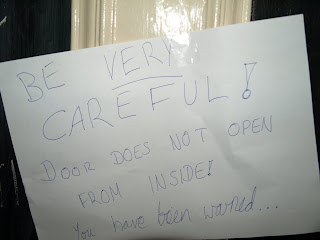 BE VERY
CAREFUL!
DOOR DOES NOT OPEN
FROM INSIDE!
You have been warned...